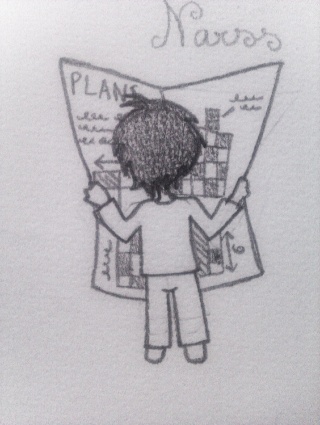 Narss
PLANS
6